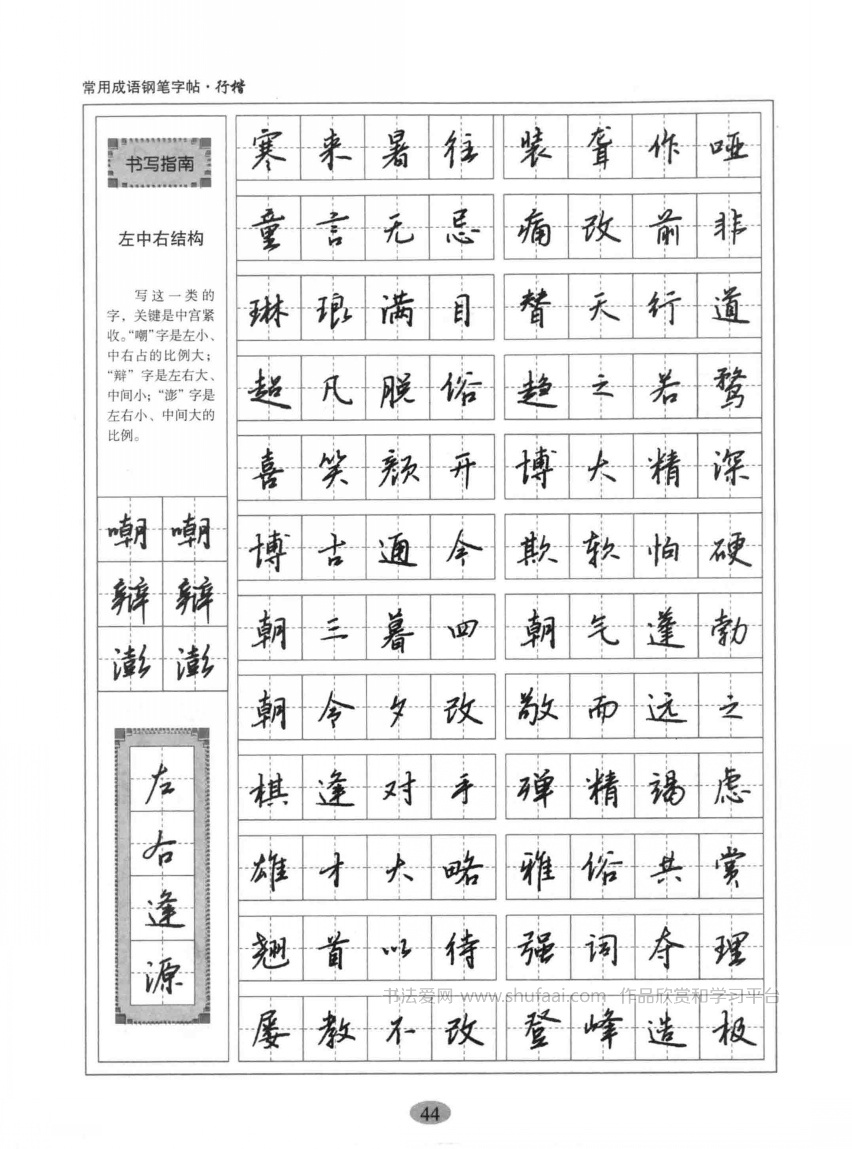 常用成语钢笔字帖·行楷
书写指南
左中右结构
写这一类的
字,关键是中宫紧
收。“嘲”字是左小、
中右占的比例大;
“辩”字是左右大、
中间小;“澎”字是
左右小、中间大的
比例。
嘲 嘲
辩 辩
澎 澎
左
右
逢
源
寒来暑往 装聋作哑
童言无忌 痛改前非
琳琅满目 替天行道
超凡脱俗 趋之若鹜
喜笑颜开 博大精深
博古通今 欺软怕硬
朝三暮四 朝气蓬勃
朝令夕改 敬而远之
棋逢对手 殚精竭虑
雄才大略 雅俗共赏
翘首以待 强词夺理
书法爱网 www.shufaai.com 作品欣赏和学习平台
屡教不改 登峰造极
44